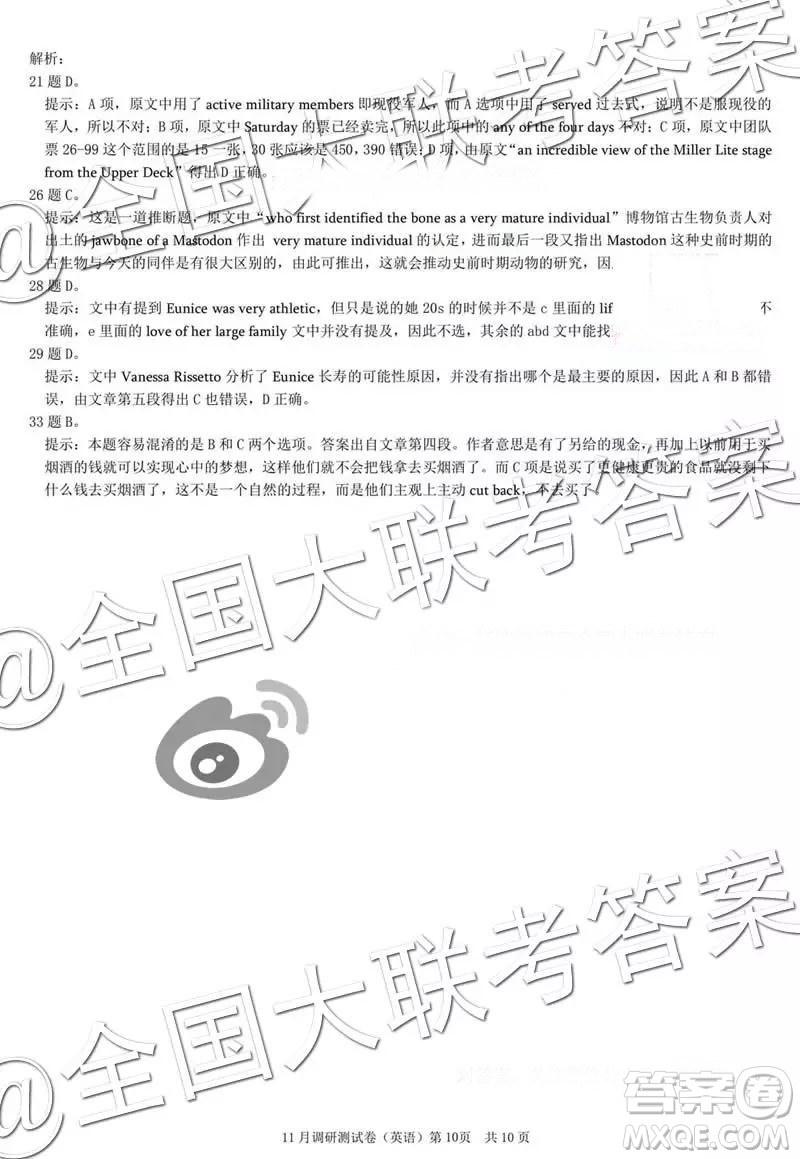 解析：
21 题 D。
提示：A 项，原文中用了 active military members 即现役军人，而 A 选项中用了 served 过去式，说明不是服现役的
军人，所以不对；B 项，原文中 Saturday 的票已经卖完，所以此项中的 any of the four days 不对；C 项，原文中团队
票 26-99 这个范围的是 15 一张，30 张应该是 450，390 错误；D 项，由原文“an incredible view of the Miller Lite stage
from the Upper Deck”得出 D 正确。
26 题 C。
提示：这是一道推断题，原文中“who first identified the bone as a very mature individual”博物馆古生物负责人对
出土的 jawbone of a Mastodon 作出 very mature individual 的认定，进而最后一段又指出 Mastodon 这种史前时期的
古生物与今天的同伴是有很大区别的，由此可推出，这就会推动史前时期动物的研究，因
28 题 D。
提示：文中有提到 Eunice was very athletic，但只是说的她 20s 的时候并不是 c 里面的 lif 不
准确，e 里面的 love of her large family 文中并没有提及，因此不选，其余的 abd 文中能找
29 题 D。
提示：文中 Vanessa Rissetto 分析了 Eunice 长寿的可能性原因，并没有指出哪个是最主要的原因，因此 A 和 B 都错
误，由文章第五段得出 C 也错误，D 正确。
33 题 B。
提示：本题容易混淆的是 B 和 C 两个选项。答案出自文章第四段。作者意思是有了另给的现金，再加上以前用于买
烟酒的钱就可以实现心中的梦想，这样他们就不会把钱拿去买烟酒了。而 C 项是说买了更健康更贵的食品就没剩下
什么钱去买烟酒了，这是一个自然的过程，而是他们主观上主动 cut back，不去买了
@全国大联考答案
@全国大联考答案
答案卷
11 月调研测试卷（英语）第 10页 共 10 页